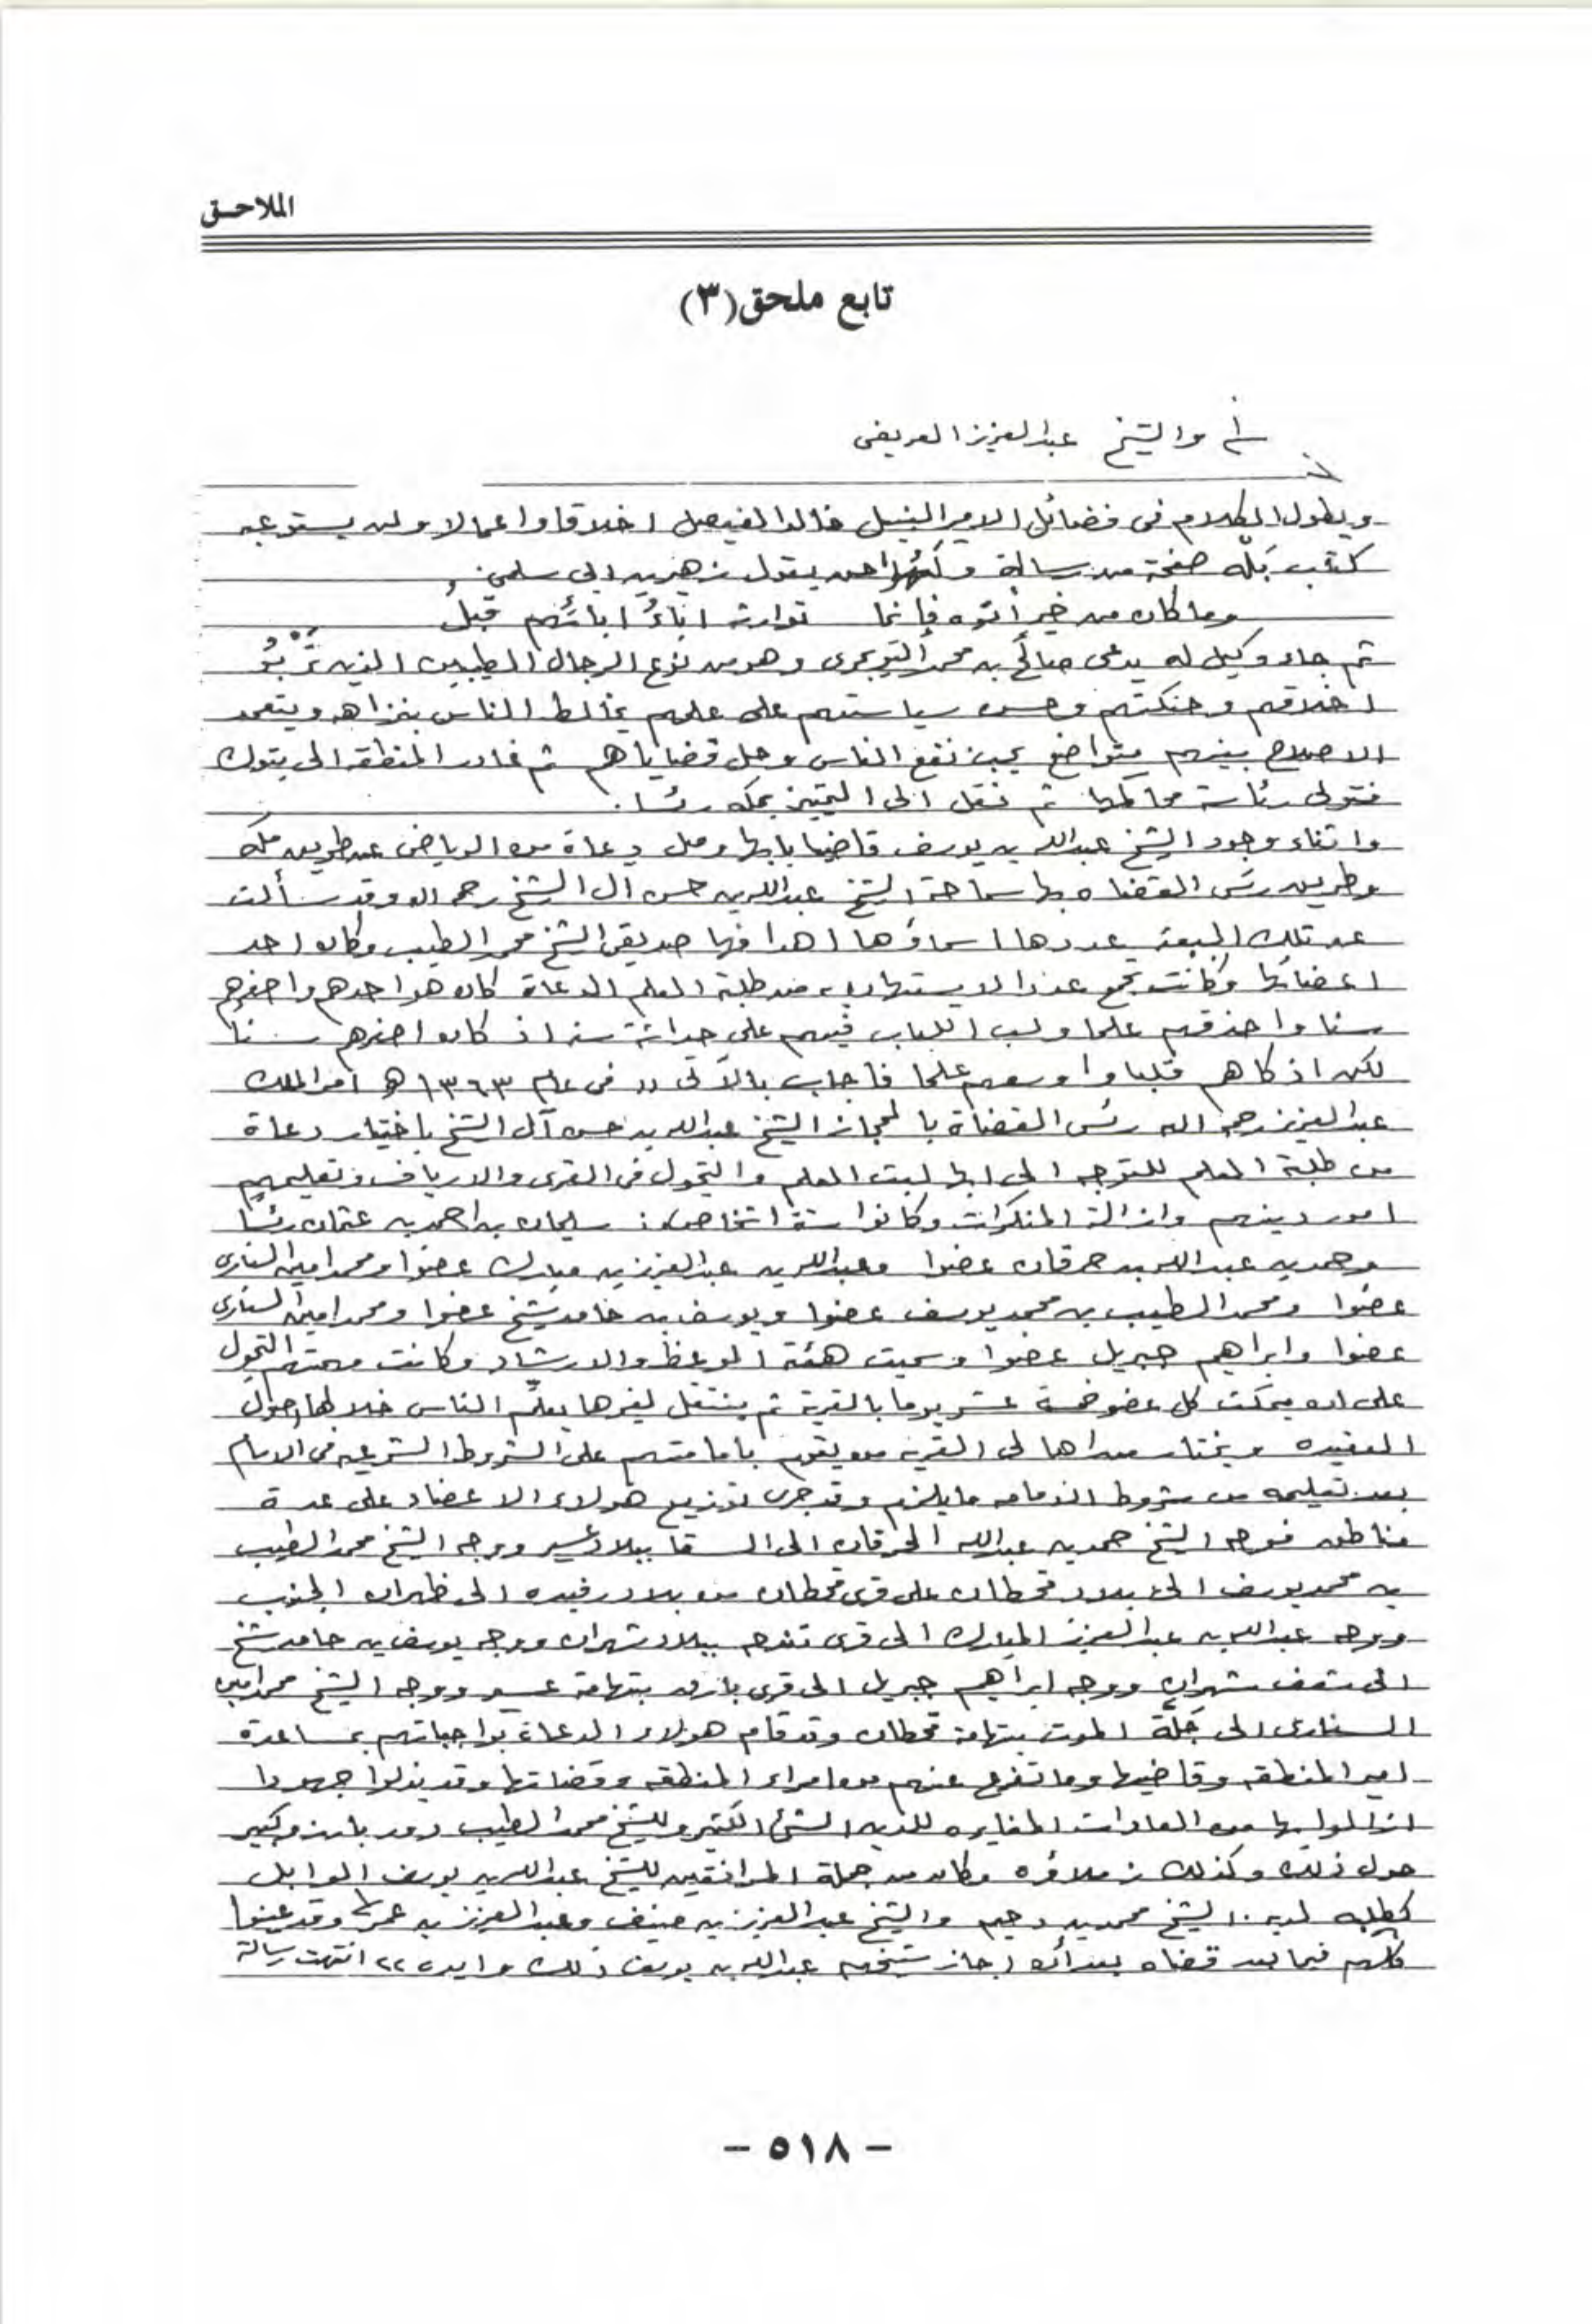 الملاحق
تابع ملحق (٣)
والشيخ عبدالعزيز العريفى
ويطول الكلام فى فضائل الامير النبيل خالد الفيصل اخلاقا واعمالا ولن يستوعبه
كتاب بله صفحة من رسالة يقول زهير بن ابى سلمى:
وما كان من خير أتوه فإنما توارثه اباءُ ابائهم قبلُ
ثم جاء وكيل له يدعى صالح بن محمد التويجرى وهو من نوع الرجال الطيبين الذين
اخلاقهم وحنكتهم وحسن سياستهم على علمهم يخالط الناس بنزاهه ويتعمد
الاصلاح بينهم متواضع يحب نفع الناس وحل قضاياهم ثم غادر المنطقه الى تبوك
فتولى رئاسة محاكمها ثم نقل الى التمييز بمكه رئسا.
واثناء وجود الشيخ عبدالله بن يوسف قاضيا بابها وصل دعاة من الرياض عن طريق مكه
وطريق رئس القضاه بها سماحة الشيخ عبدالله بن حسن ال الشيخ رحمه الله وقد سألت
عن تلك البعثة عددها اسماؤها اهدافها صديقى الشيخ محمد الطيب وكان احد
اعضائها وكانت تجمع عددا لا يستهان به من طلبة العلم الدعاة كان هو احدهم واصغرهم
سنا واحذقهم علما ولب اللباب فيهم على حداثة سنه اذ كان اصغرهم سنا
لكن اذكاهم قلبا واوسعهم علما فاجاب بالآتى (( فى عام ١٣٦٣ هـ امر الملك
عبدالعزيز رحمه الله رئس القضاة بالحجاز الشيخ عبدالله بن حسن آل الشيخ باختيار دعاة
من طلبة العلم للتوجه الى ابها لبث العلم والتجول فى القرى والارياف وتعليمهم
امور دينهم وازالة المنكرات وكانوا ستة اشخاص: سليمان بن احمد بن عثمان رئسا
وحمد بن عبدالله بن حرقان عضوا وعبدالله بن عبدالعزيز بن مبارك عضوا ومحمد امين السنارى
عضوا ومحمد الطيب بن محمد يوسف عضوا ويوسف بن حامد شيخ عضوا ومحمد امين السنارى
عضوا وابراهيم جبريل عضوا وسميت هئة الوعظ والارشاد وكانت مهمتهم التجول
على ان يمكث كل عضو خمسة عشر يوما بالقرية ثم ينتقل لغيرها يعلّم الناس خلالها اصول
العقيده ويختار من اهالى القريه من يقوم بامامتهم على الشروط الشرعيه فى الامام
بعد تعليمه من شروط الامامه مايلزم وقد جرى توزيع هولاء الاعضاء على عدة
مناطق فوجه الشيخ حمد بن عبدالله الحرقان الى السقا ببلاد عسير ووجه الشيخ محمد الطيب
بن محمد يوسف الى بلاد قحطان على قرى قحطان من بلاد رفيده الى ظهران الجنوب
ووجه عبدالله بن عبدالعزيز المبارك الى قرى تندحه ببلاد شهران ووجه يوسف بن حامد شيخ
الى شعف شهران ووجه ابراهيم جبريل الى قرى بارق بتهامة عسير ووجه الشيخ محمد امين
السنارى الى الموت بتهامة قحطان وقد قام هولاء الدعاة بواجباتهم بمساعدة
امير المنطقه وقاضيها وما تفرع عنهم من امراء المنطقه وقضاتها وقد بذلوا جهودا
ازالوا بها من العادات المغايره للدين الشئ الكثير وللشيخ محمد الطيب دور بارز وكبير
حول ذلك وكذلك زملاؤه وكان من جملة المرافقين للشيخ عبدالله بن يوسف الوابل
كطلبه لديه. الشيخ محمد بن دحيم والشيخ عبدالعزيز بن منيف وعبدالعزيز بن عمر وقد عينوا
كلهم فيما بعد قضاه بعد أن اجاز شيخهم عبدالله بن يوسف ذلك وايده ٢٢ انتهت رسالة
- ٥١٨ -